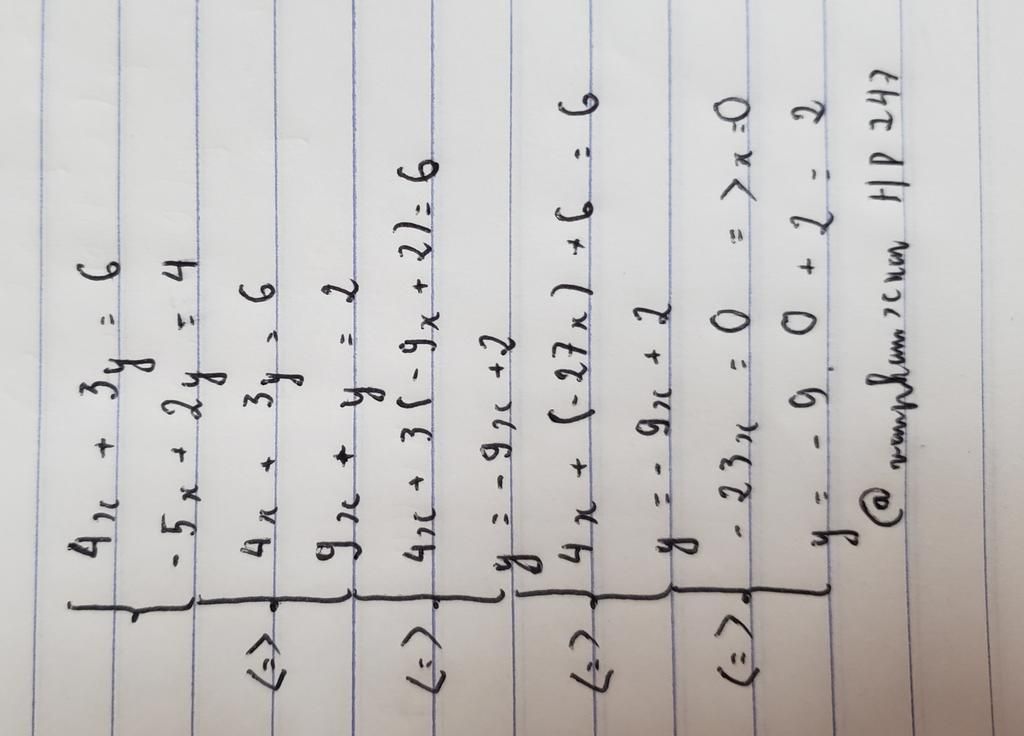 4x + 3y = 6
-5x + 2y = 4
(=) 4x + 3y = 6
9x + y = 2
(=) 4x + 3(-9x + 2) = 6
y = -9x + 2
(=) 4x + (-27x) + 6 = 6
y = -9x + 2
(=) -23x = 0 => x = 0
y = -9 . 0 + 2 = 2
@ HP 247